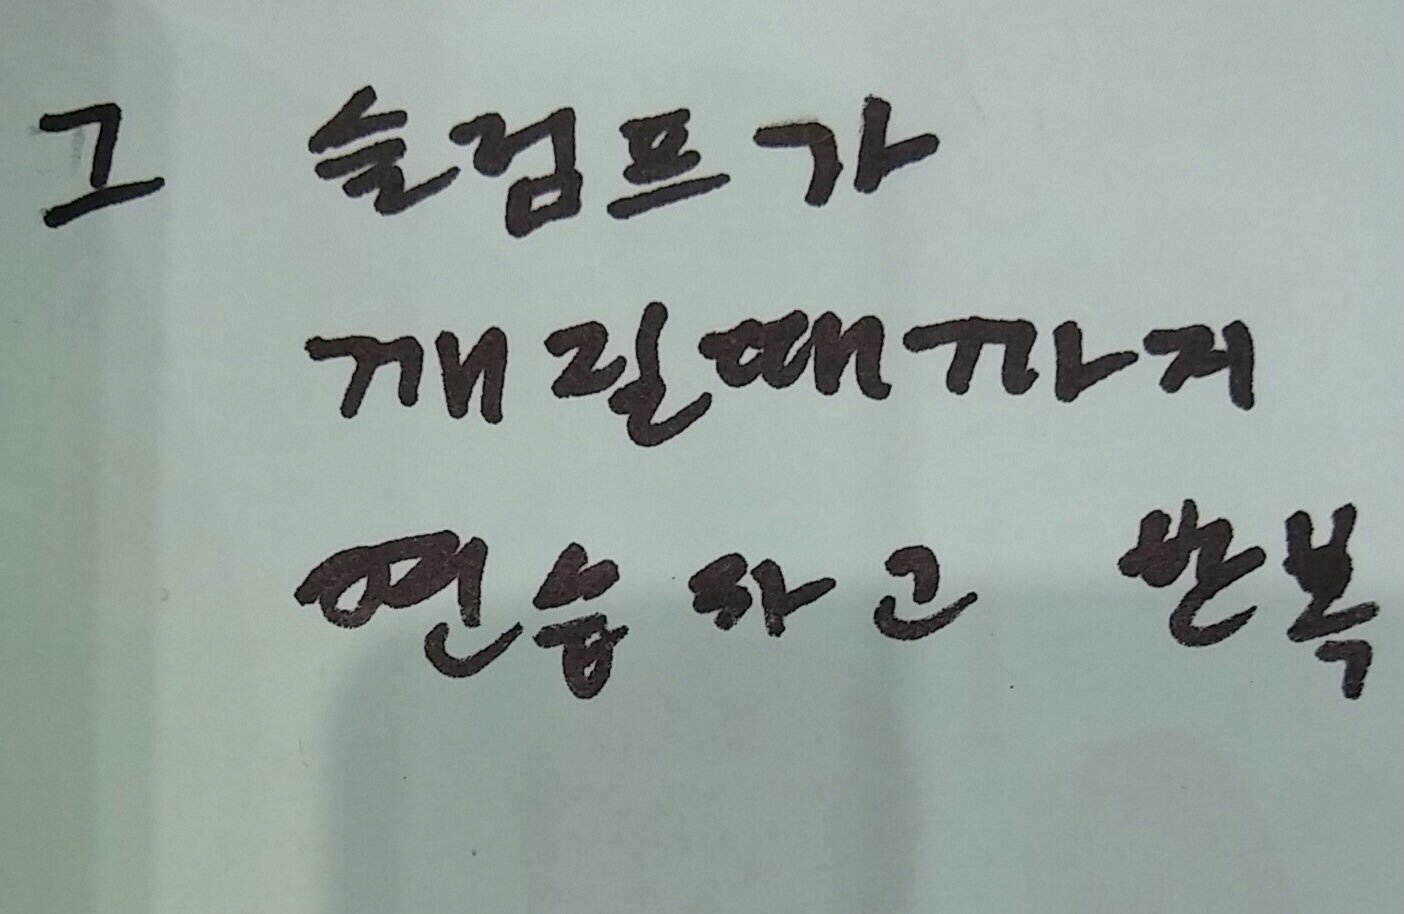 그 슬럼프가
깨질때까지
연습하고 반복